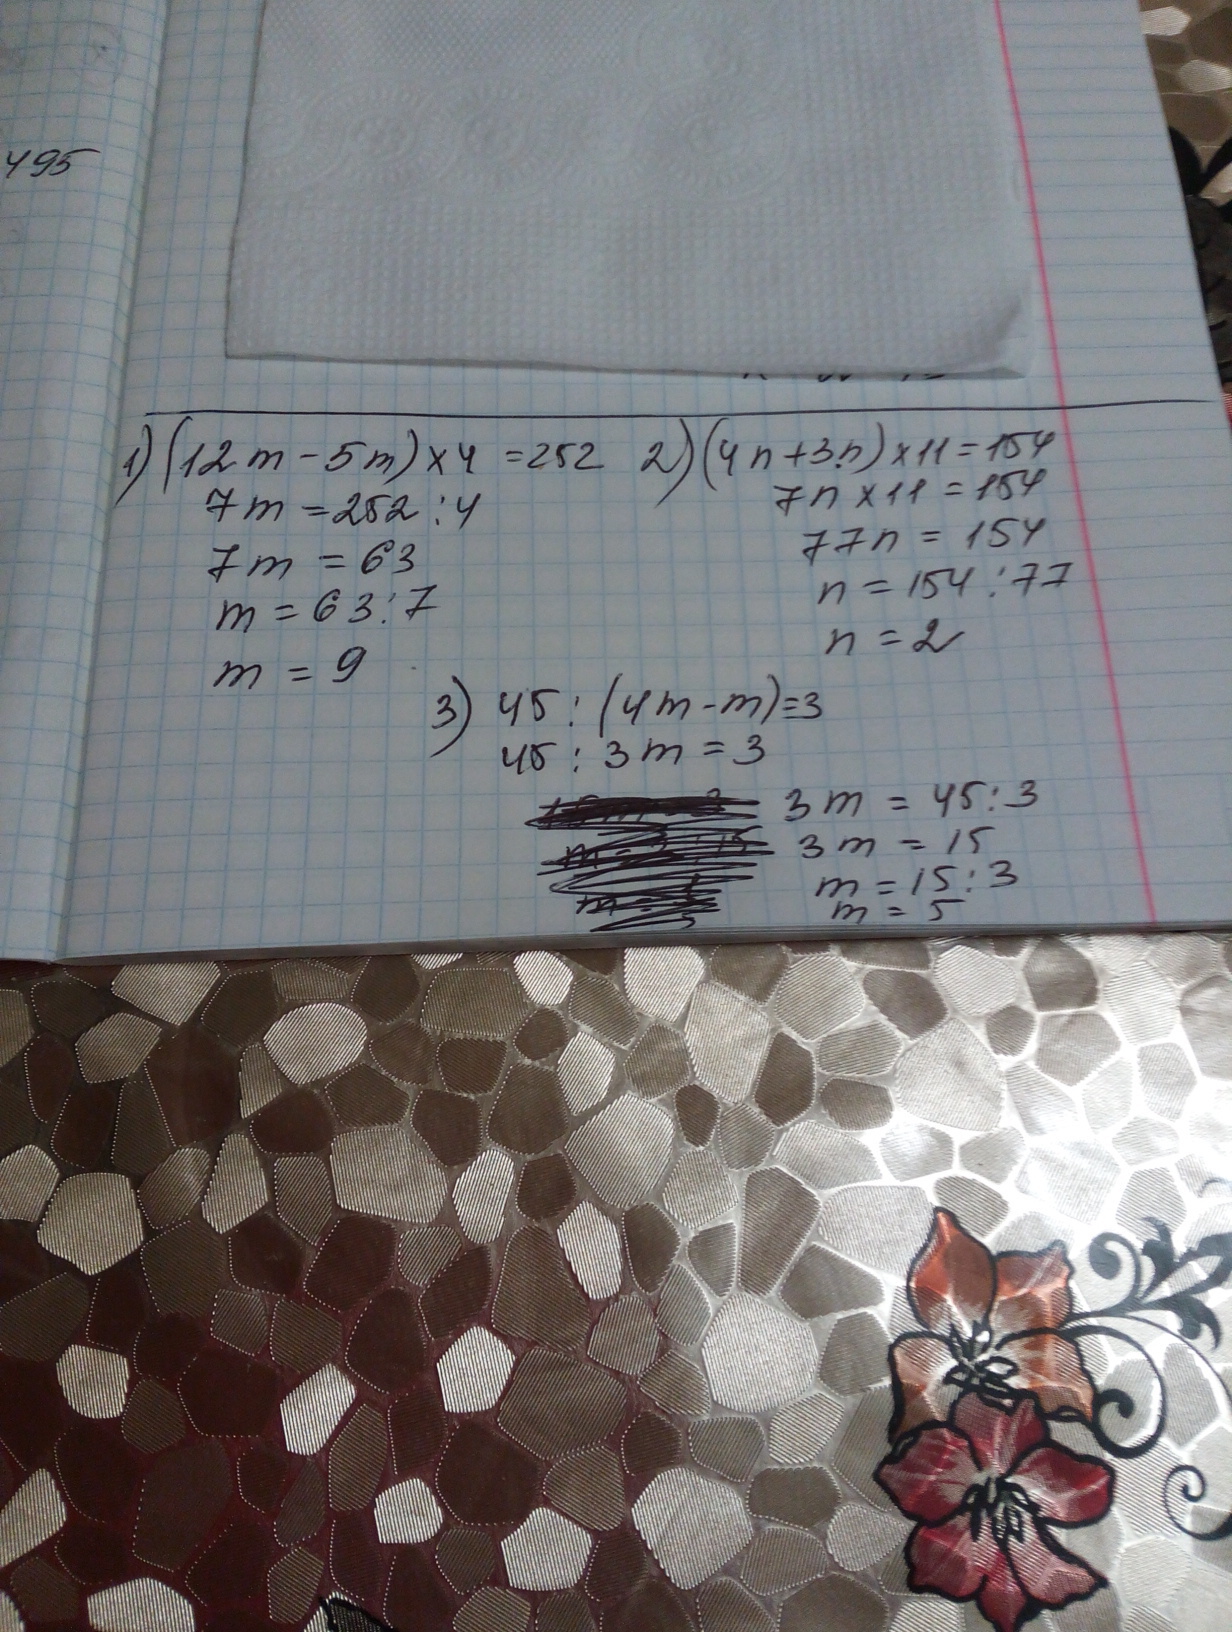 495
1) (12m - 5m) x 4 = 252
7m = 252 : 4
7m = 63
m = 63 : 7
m = 9
2) (4n + 3n) x 11 = 154
7n x 11 = 154
77n = 154
n = 154 : 77
n = 2
3) 45 : (4m - m) = 3
45 : 3m = 3
3m = 45 : 3
3m = 15
m = 15 : 3
m = 5